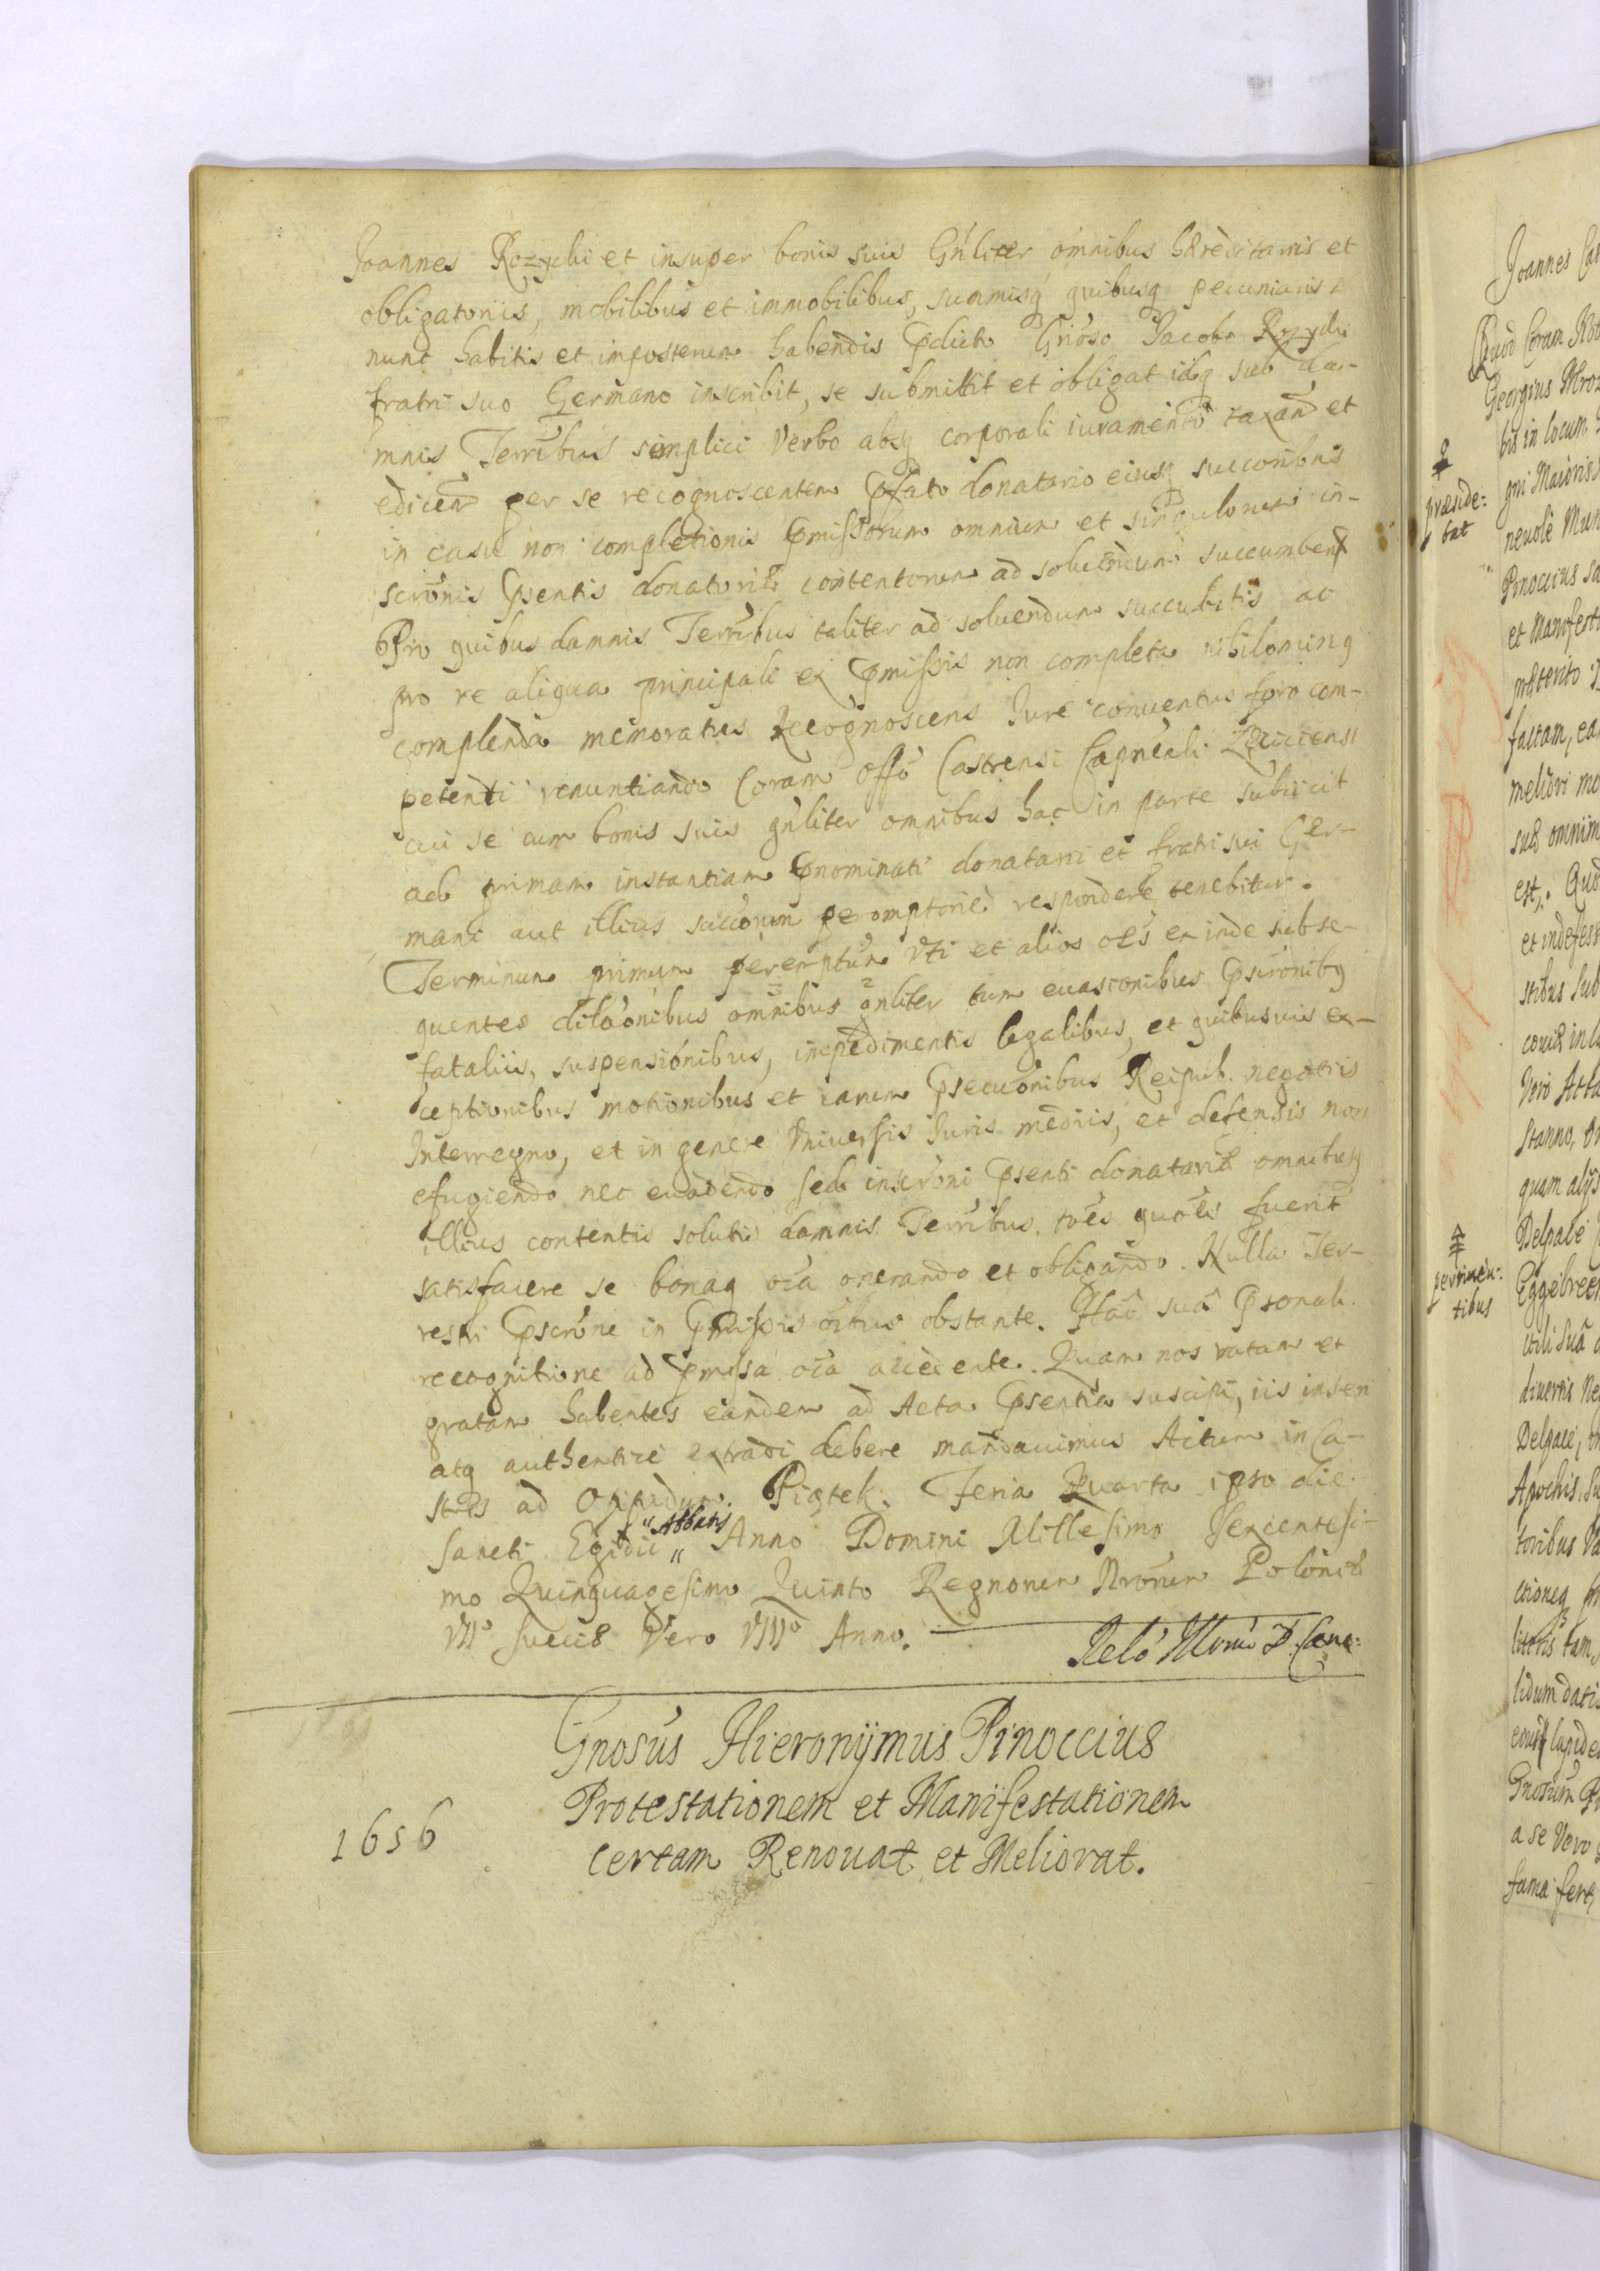 Joannes Rozycki et insuper bonis suis Gnliter omnibus hæreditariis et
obligatoriis, mobilibus et immobilibus, summisq quibusq pecuniariis
nunc habitis et inposterum habendis Pdicto Gnoso Jacobo Rozycki
fratri suo Germano inscribit, se submittit et obligat idq sub da-
mnis Terribus simplici Verbo absq corporali iuramento taxand et
edicend per se recognoscentem Pfato donatario eiusq succoribus
in casu non completionis Pmissorum omnium et singulorum in-
scronis Psentis donatoriæ contentorum ad solutndum succumbend
Pro quibus damnis Terribus taliter ad soluendum succubitis ac
pro re aliqua principali ex Pmissis non completa nihilominq
complenda memoratus Recognoscens Jure conuentus foro com-
petenti renuntiando Coram Offo Castrensi Capneali Lęciciensi
cui se cum bonis suis gnliter omnibus hac in parte subiicit
ad primam instantiam Pnominati donatarii et fratri sui Ger-
mani aut illius succorum peromptorie respondere tenebitur.
Terminum primum peremptum Vti et alios oēs ex inde subse-
quentes dilōonibus omnibus 3 gnliter 2 tum euasionibus Pscronibq
fataliis, suspensionibus, impedimentis legalibus, et quibusuis ex-
ceptionibus motionibus et earum Psecuōnibus Reipub. negotiis
Interregno, et in genere Vniuersis Juris mediis, et defensis non
efugiendo nec euadendo sed inscroni Psenti donatariæ omnibusq
illius contentis solutis damnis Terribus. toēs quoēs fuerit
satisfacere se bonaq oīa onerando et obligando. Nulla Ter-
restri Pscrōne in Pmissis oītus obstante. Hac sua Psonali.
recognitione ad Pmissa oīa accedente. Quam nos ratam et
gratam habentes eandem ad Acta Psentia suscipi, iis inseri
atq authentice extradi debere mandauimus Actum in Ca-
stris ad Oppidum Piątek. Feria Quarta ipso die
Sancti Egidii "Abbatis" Anno Domini Millesimo Sexcentesi-
mo Quinquagesimo Quinto Regnorum Nrorum Poloniæ
VIIº Sueciæ Vero VIIIº Anno.
Relō Illrmi D. Canc:
Gnosus Hieronijmus Pinoccius
Protestationem et Manifestationem
certam Renouat et Meliorat.
1656
præside:
bat
pertinen:
tibus
Joannes Ca
Quod Coram Not
Georgius Mroz
tis in locum
gni Maioris
neuole Mun
Pinoccius sa
et Manifest
præterito
factam, ea
meliori mo
suæ omnim
est. Quo
et indefess
stibus sub
couiæ in
Vero Atta
Stanno,
quam alijs
Delpace
Eggebreet
ctili Sua
diuersis Ne
Delpace,
Apochis,
toribus Va
ctioneq
literis tam
lidum datis
eousq lapide
Gnosum P
a se Vero
fama fere